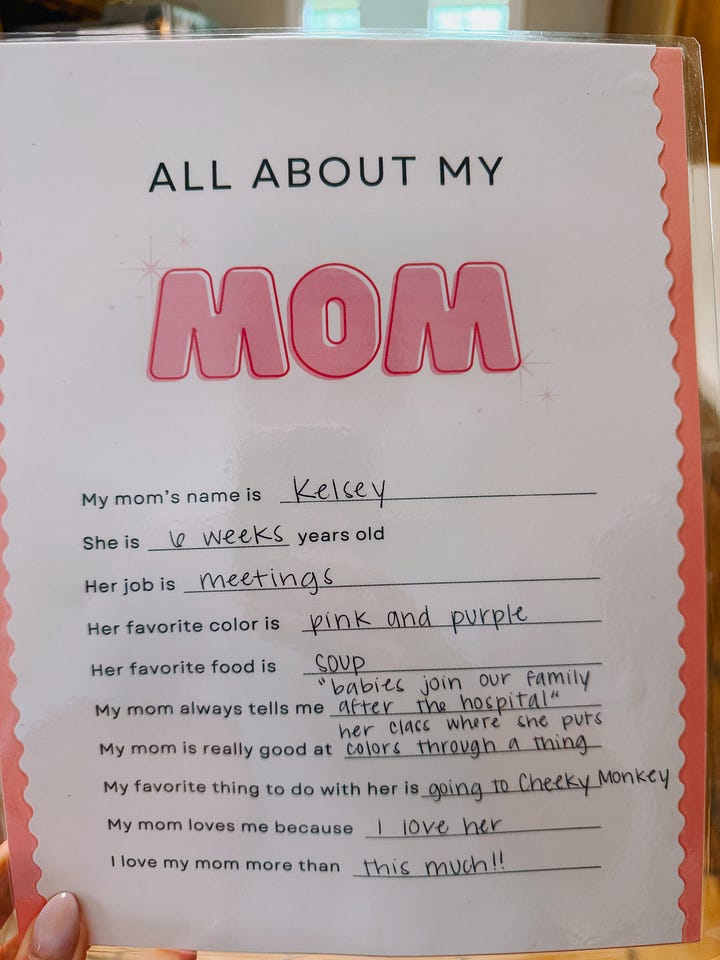 ALL ABOUT MY
MOM
My mom's name is Kelsey
She is 6 weeks years old
Her job is meetings
Her favorite color is pink and purple
Her favorite food is soup
"babies join our family
My mom always tells me after the hospital"
her class where she puts
My mom is really good at colors through a thing
My favorite thing to do with her is going to Cheeky Monkey
My mom loves me because I love her
I love my mom more than this much!!